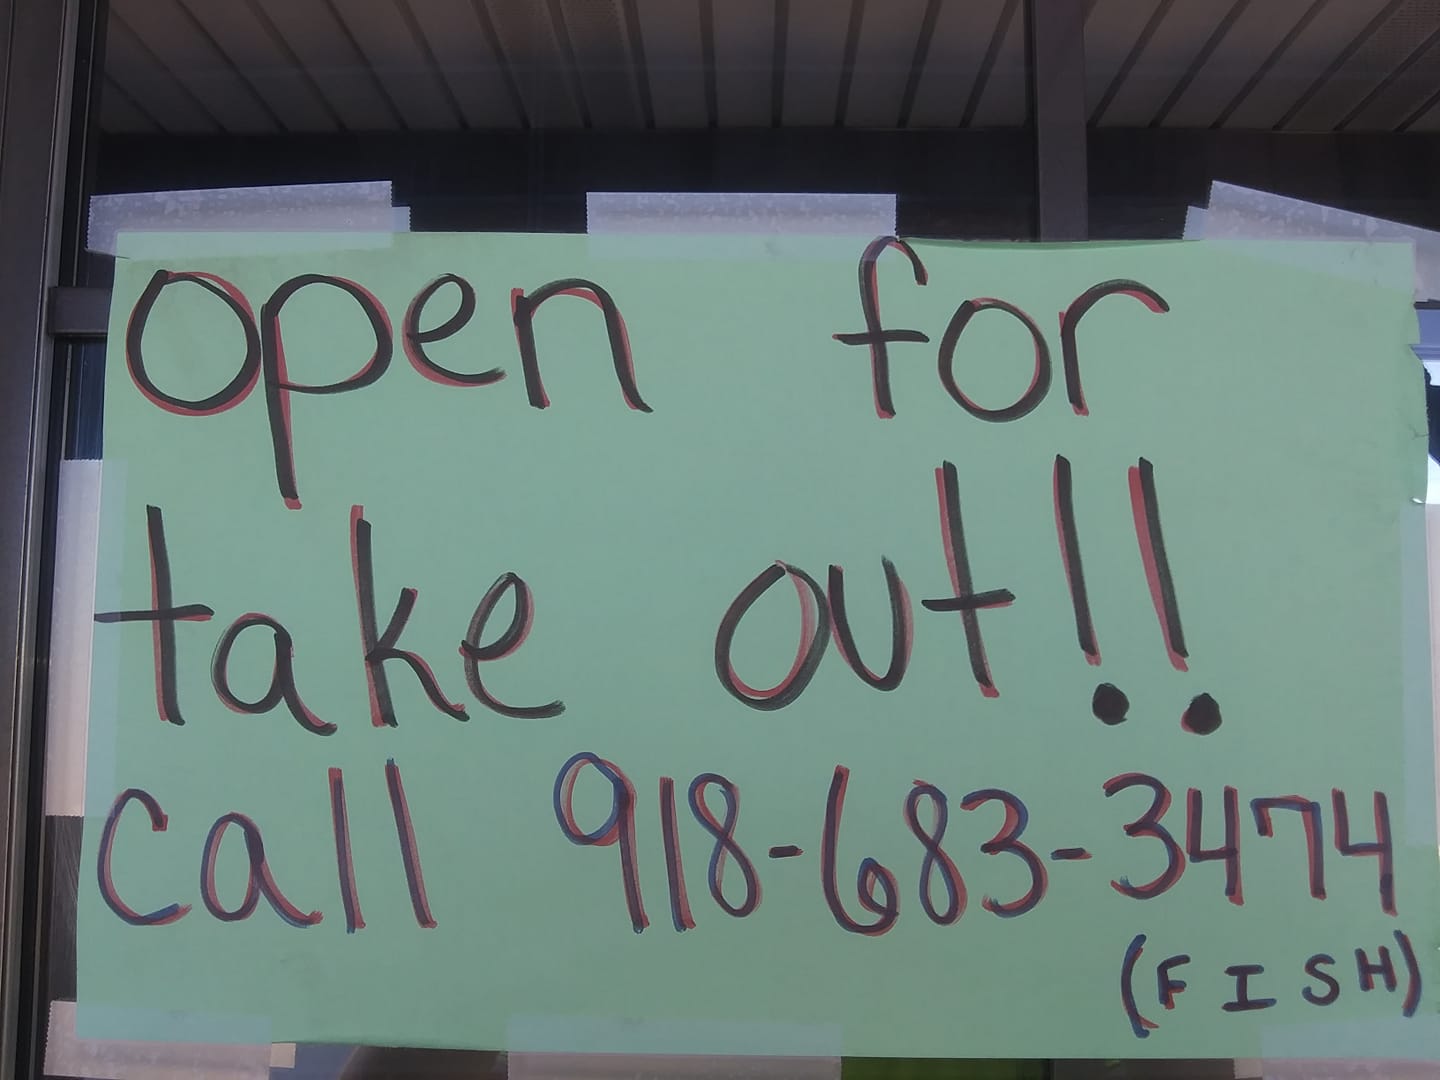 open for
take out!!
Call 918-683-3474
(FISH)